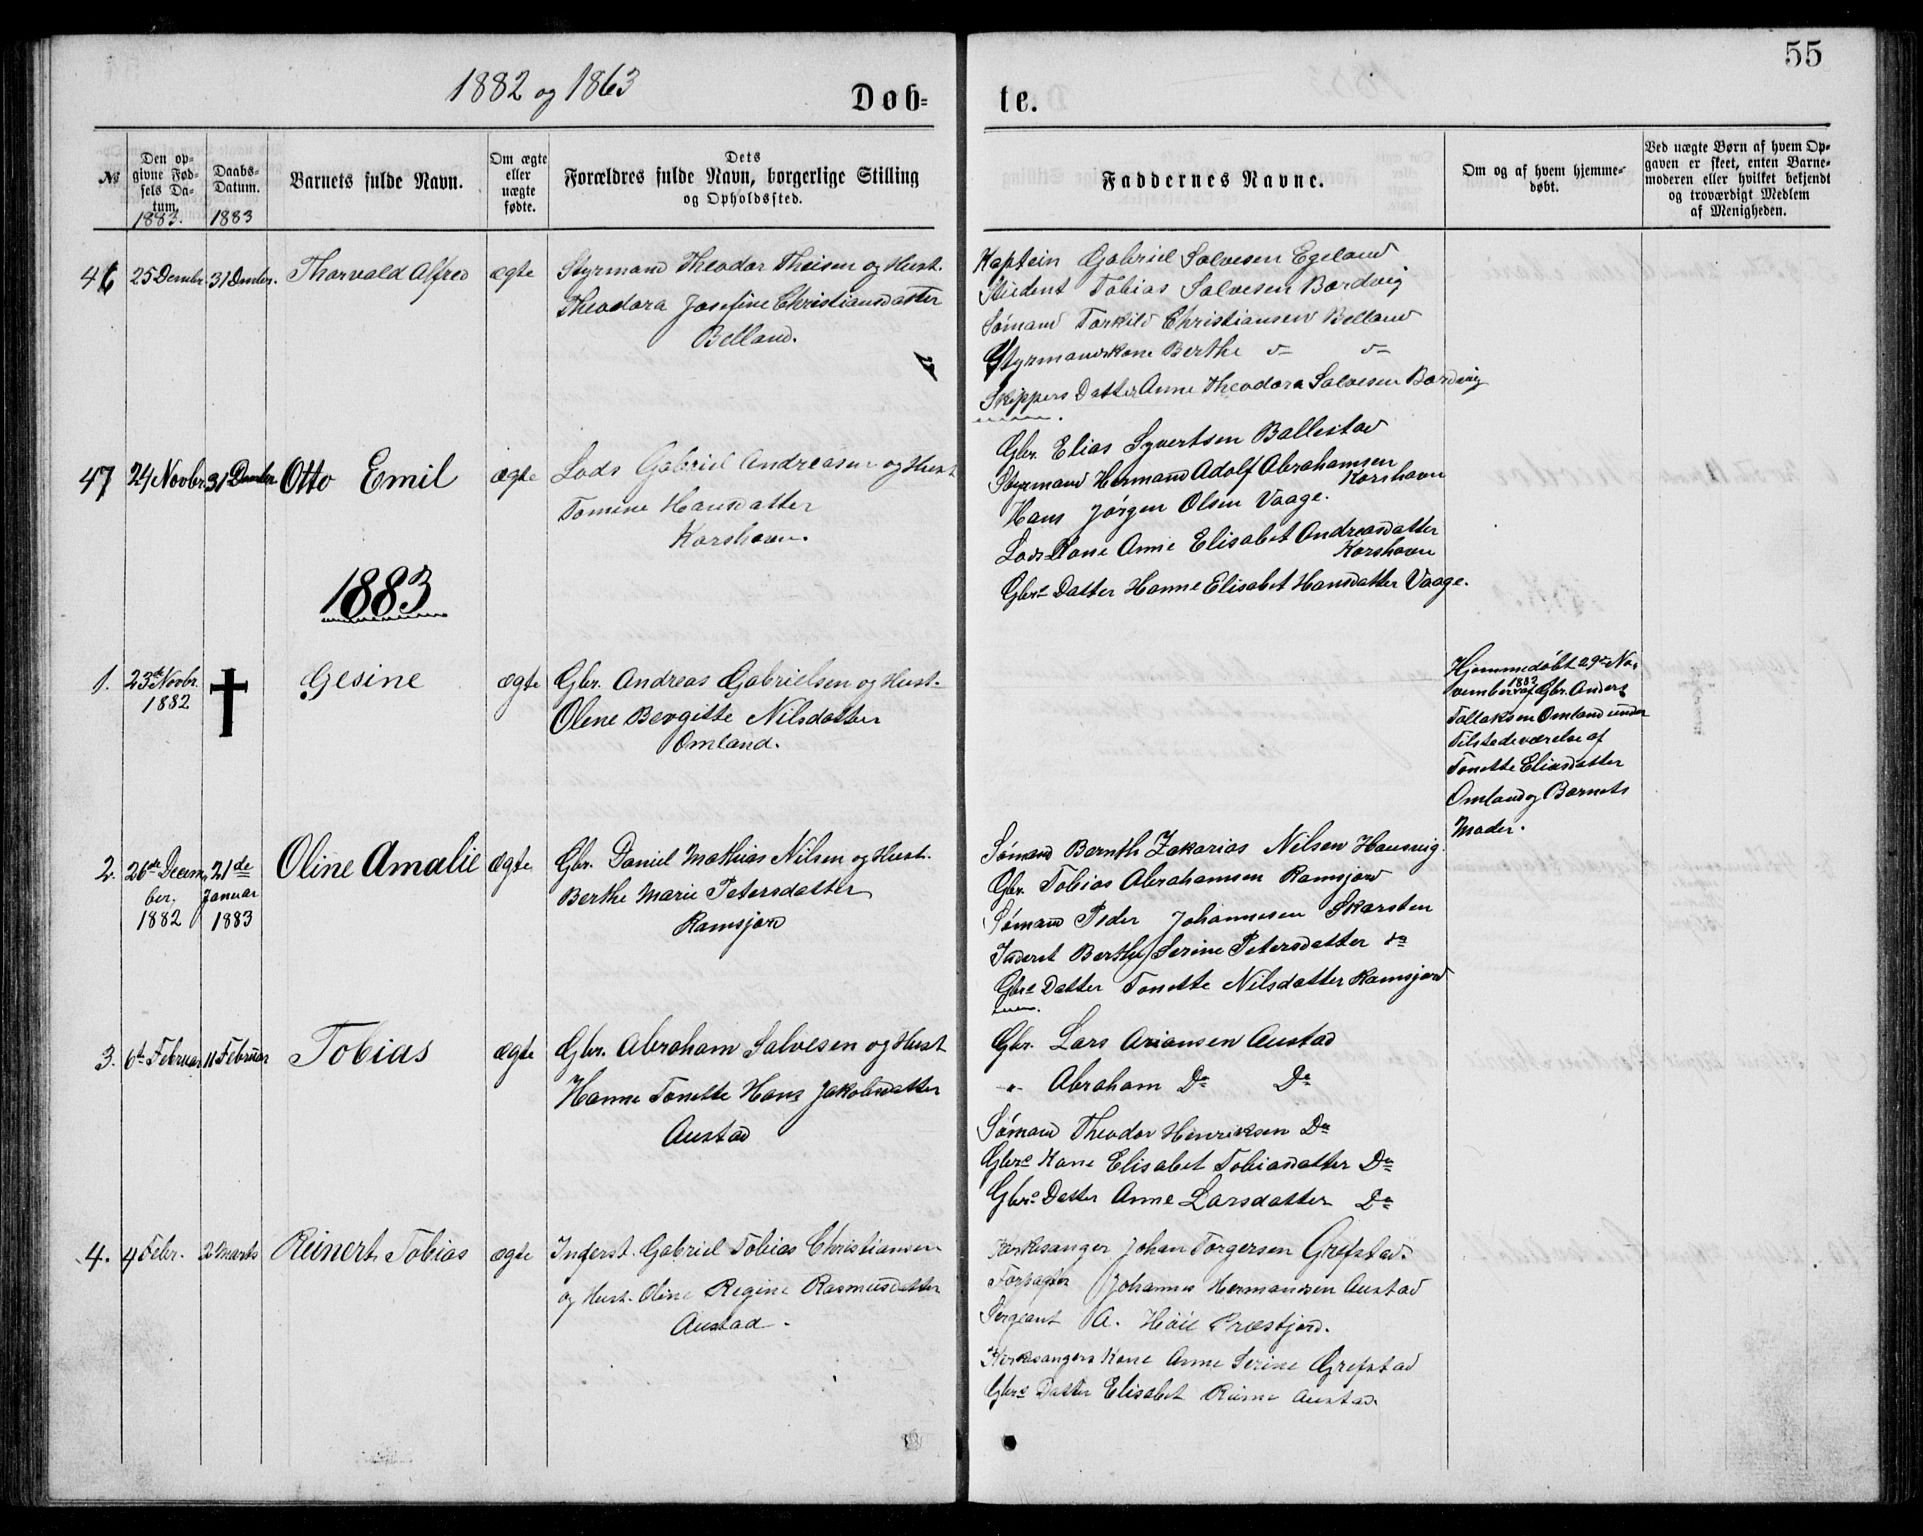 55
1882 og 1863
Døb=
te.
№
Den op=
givne Fød=
sels Da=
tum.
1883.
Daabs=
Datum.
1883
Barnets fulde Navn.
Om ægte
eller
uægte
fødte.
Dets
Forældres fulde Navn, borgerlige Stilling
og Opholdssted.
Faddernes Navne.
Om og af hvem hjemme=
døbt.
Ved uægte Børn af hvem Op=
gaven er skeet, enten Barne=
moderen eller hvilket bekjendt
og troværdigt Medlem
af Menigheden.
46 25 Dembr. 31 Dmbr. Thorvald Alfred ægte
Styrmand Theodor Theisen og Hust.
Theodora Josefine Christiansdatter
Belland.
Kaptein Gabriel Salvesen Egeland
Student Tobias Salvesen Bordvig
Sømand Torkild Christiansen Belland
Styrmandskone Berthe
Skippers Datter Anne Theodora Salvesen Bordvig
47 24 Novbr 31 Dembr Otto Emil ægte
Lods Gabriel Andreasen og Hust
Tomine Hansdatter
Korshavn.
Gbr. Elias Syvertsen Ballestad
Styrmand Hermand Adolf Abrahamsen
Korshavn
Hans Jørgen Olsen Vaage.
Lods Kone Anne Elisabet Andreasdatter
Korshavn
Gbrs Datter Hanne Elisabet Hansdatter Vaage.
1883
1. 23de Novbr.
1882
† Gesine ægte
Gbr. Andreas Gabrielsen og Hust.
Olene Bergitte Nilsdatter
Omland.
Hjemmedøbt 29de No-
vember 1882 af Gbr. Anders
Tallaksen Omland under
Tilstedeværelse af
Tonette Eliasdatter
Omland og Barnets
Moder.
2. 26de Decem-
ber.
1882
21de
Januar
1883
Oline Amalie ægte
Gbr. Daniel Mathias Nilsen og Hust.
Berthe Marie Petersdatter
Ramsjord
Sømand Bernth Zakarias Nilsen Hausvig.
Gbr. Tobias Abrahamsen Ramsjord
Sømand Peder Johannesen Skarsten
Inderst Berthe Serine Petersdatter do
Gbrs Datter Tonette Nilsdatter Ramsjord
3. 6te Februar 11 Februar Tobias ægte
Gbr. Abraham Salvesen og Hust
Hanne Tonette Hans Jakobsdatter
Austad
Gbr. Lars Ariansen Austad
" Abraham Do Do
Sømand Theodor Henriksen Do
Gbrs Kone Elisabet Tobiasdatter Do
Gbrs Datter Anne Larsdatter Do
4. 4 Febr. 2 Marts Reinert Tobias ægte
Inderst Gabriel Tobias Christiansen
og Hust. Oline Regine Rasmusdatter
Austad.
Kirkesanger Johan Torgersen Grefstad.
Forpagter Johannes Hermandsen Austad
Sergeant A. Høie Præstjord.
Kirkesangers Kone Anne Serine Grefstad
Gbrs Datter Elisabet Austad.